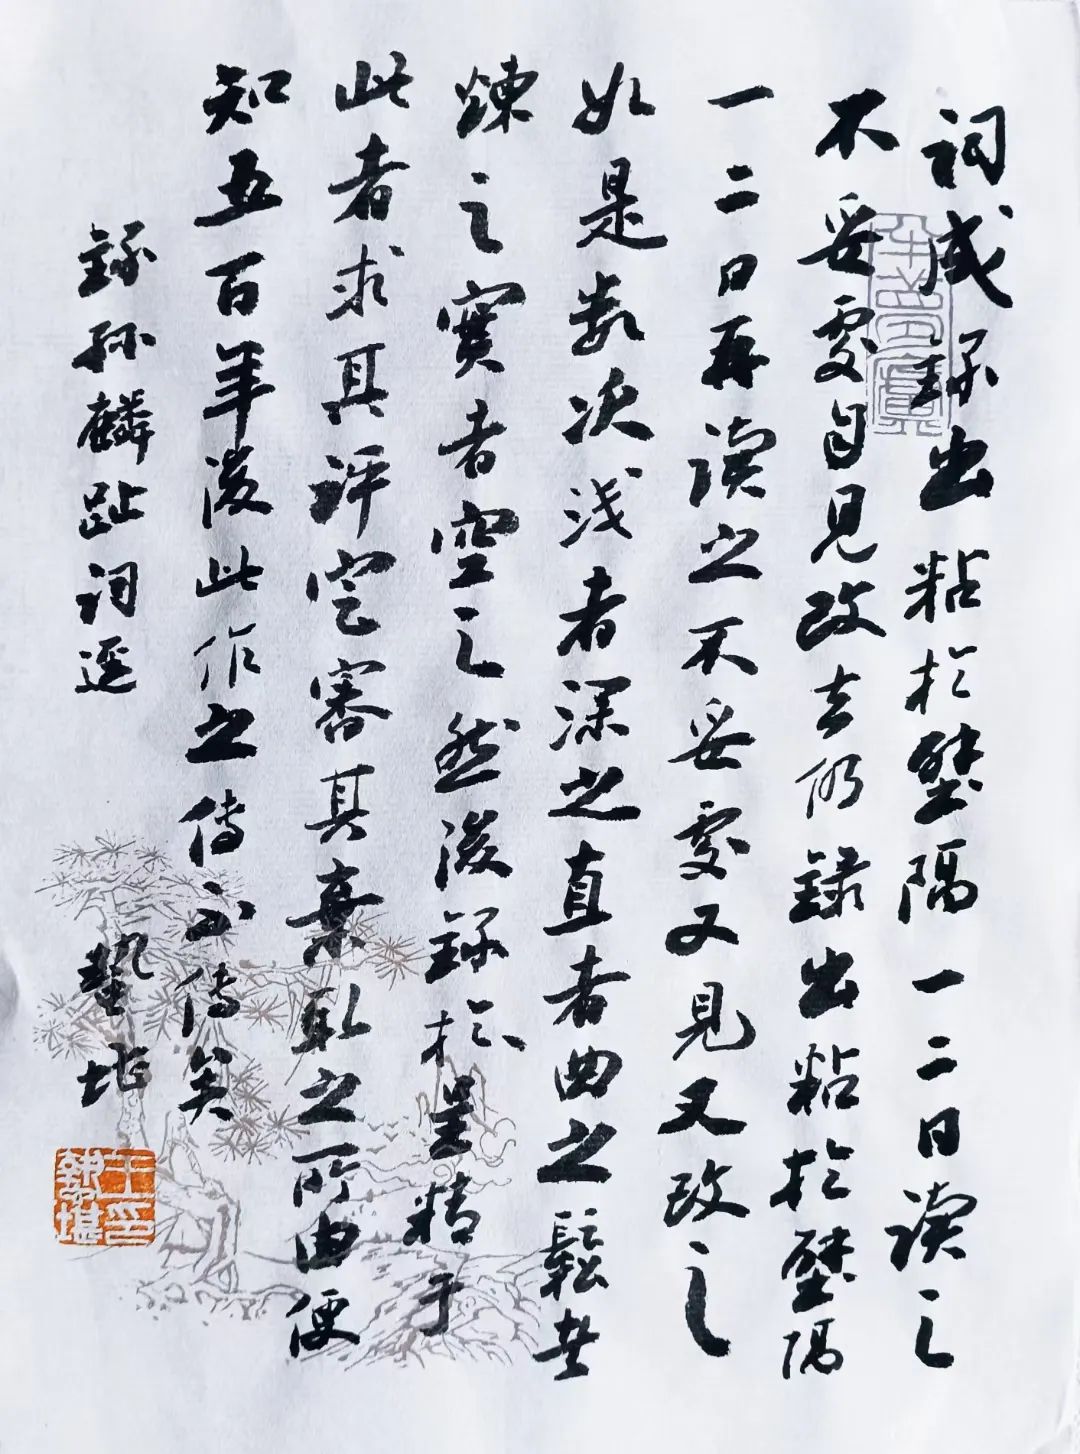 词成録出粘於壁隔一二日读之
不妥處自见改去仍録出粘於壁隔
一二日再读之不妥處又見又改之
如是数次浅者深之直者曲之鬆者
煉之實者空之然後録於呈精于
此者求其评定審其棄取之所由便
知五百年後此作之傳不傳矣
録孙麟趾词迳
蟄堪
王印蟄堪